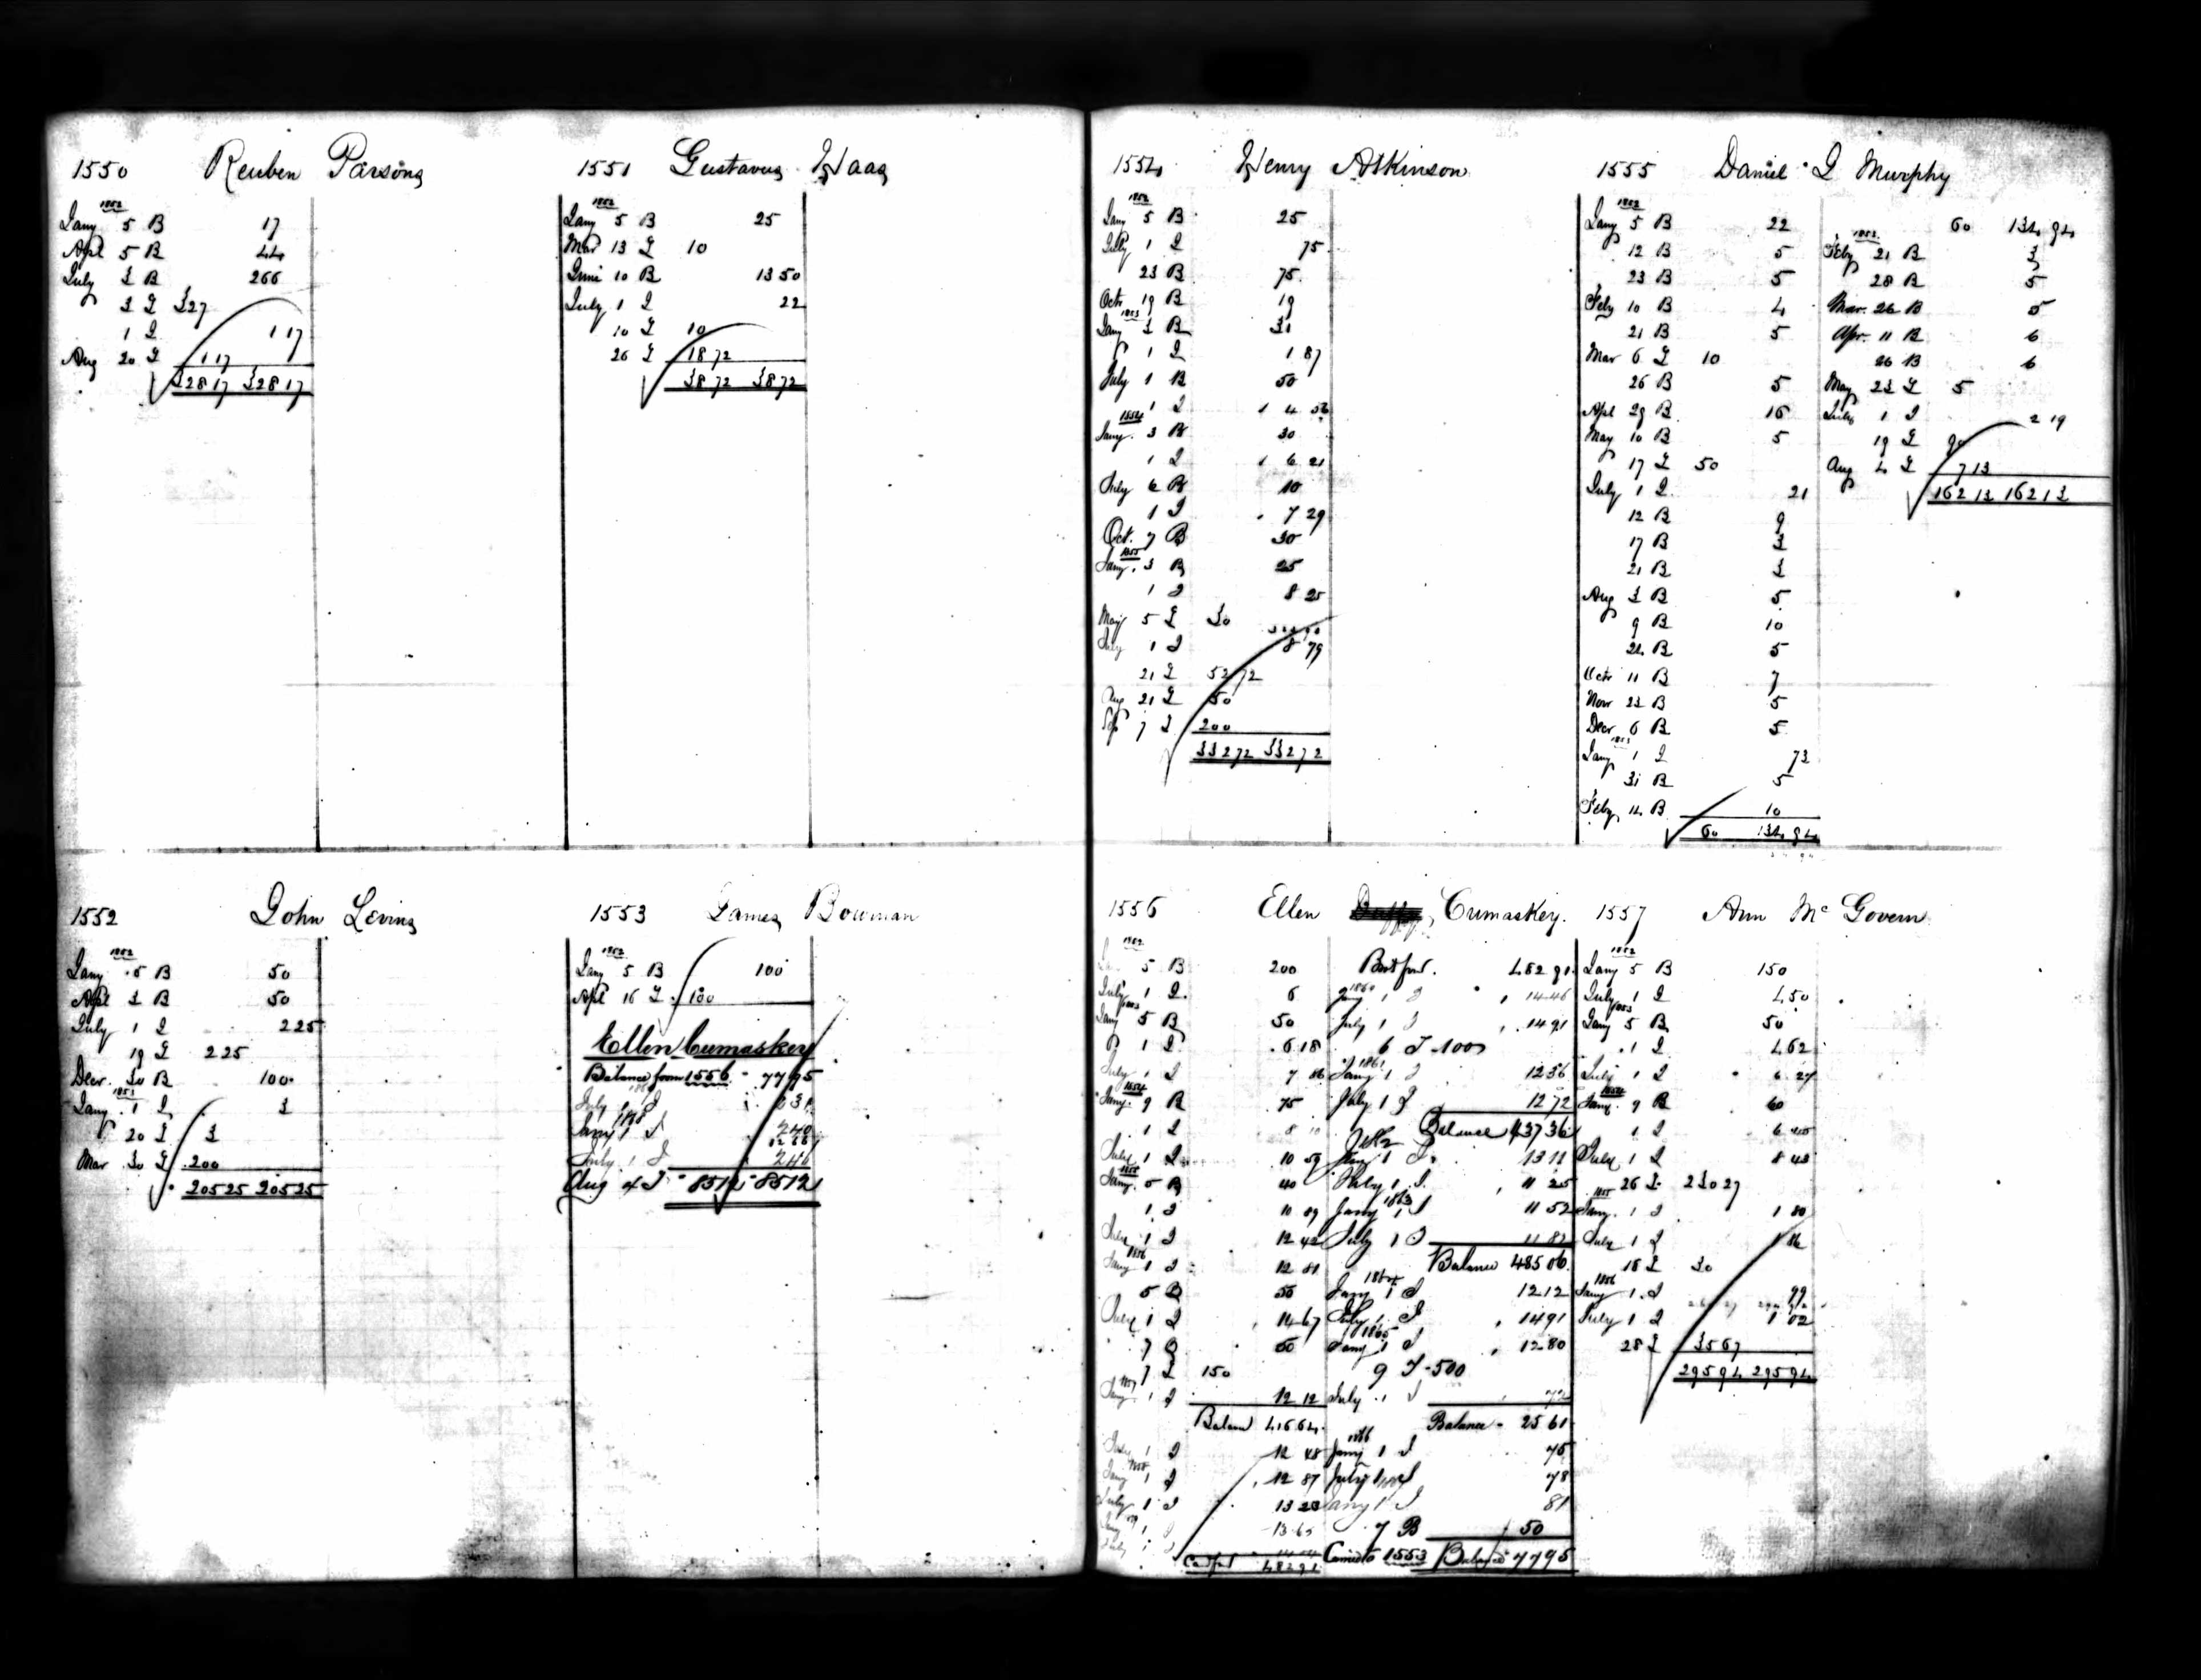 1550 Reuben Parsons
1852
Jany 5 B 17
Apl 5 B 44
July 3 B 266
3 I 327
1 I 1 17
Aug 20 I 1 17
328 17 328 17
1551 Gustavus Haas
1852
Jany 5 B 25
Mar 13 I 10
June 10 B 13 50
July 1 I 22
10 I 10
26 I 18 72
38 72 38 72
1552 John Levins
1852
Jany 5 B 50
Apl 3 B 50
July 1 I 2 25
19 I 2 25
Decr 30 B 100
1853
Jany 1 I 3
20 I 3
Mar 30 I 200
205 25 205 25
1553 James Bowman
1852
Jany 5 B 100
Apl 16 I 100
Ellen Cumaskey
Balance from 1556 - 77 95
July 1 I
Jany 1 I 2 40
July 1 I 2 46
Aug 4 I - 85 12 - 85 12
1554 Henry Atkinson
1852
Jany 5 B 25
July 1 I 75
23 B 75
Octr 19 B 19
1853
Jany 3 B 31
1 I 1 87
July 1 B 50
1 I 4 56
1854
Jany. 3 B 30
1 I 6 21
July 6 B 10
1 I 7 29
Oct. 7 B 30
1855
Jany. 3 B 25
1 I 8 25
May 5 I 30
July 1 I 8 79
21 I 52 72
Aug 21 I 50
Sep 7 I 200
332 72 332 72
1555 Daniel J Murphy
1852
Jany 5 B 22
12 B 5
23 B 5
Feby 10 B 4
21 B 5
Mar 6 I 10
26 B 5
Apl 29 B 16
May 10 B 5
17 I 50
July 1 I 21
12 B 9
17 B 3
21 B 3
Aug 3 B 5
9 B 10
24 B 5
Octr 11 B 7
Novr 23 B 5
Decr 6 B 5
1853
Jany 1 I 73
31 B 5
Feby 14 B 10
60 134 94
60 134 94
1853
Feby 21 B 3
28 B 5
Mar. 26 B 5
Apr. 11 B 6
26 B 6
May 23 I 5
July 1 I 2 19
19 I 90
Aug 4 I 7 13
162 13 162 13
1556 Ellen Cumaskey.
1852
5 B 200
July 1 I 6
1853
Jany 5 B 50
1 I 6 18
July 1 I 7 86
1854
Jany. 9 B 75
1 I 8 10
July 1 I 10 59
1855
Jany. 5 B 40
1 I 10 89
July 1 I 12 42
1856
Jany 1 I 12 81
5 B 50
July 1 I 14 67
7 B 50
7 I 150
1857
Jany 1 I 12 12
Balance 416 64
July 1 I 12 48
1858
Jany 1 I 12 87
July 1 I 13 23
1 I 13 65
Card ford 482 91
Brot ford. 482 91
1860
Jany 1 I 14 46
July 1 I 14 91
6 I 100
1861
Jany 1 I 12 36
July 1 I 12 72
Balance 437 36
Jany 1 I 13 11
July 1 I 11 25
1863
Jany 1 I 11 52
July 1 I 11 82
Balance 485 06
Jany 1 I 12 12
July 1 I 14 91
1865
Jany 1 I 12 80
9 I 500
July 1 I 72
Balance - 25 61
1866
Jany 1 I 75
July 1 I 78
Jany 1 I 81
7 B 50
Carried to 1553 Balance 77 95
1557 Ann Mc Govern
1852
Jany 5 B 150
July 1 I 4 50
1853
Jany 5 B 50
1 I 4 62
July 1 I 6 27
1854
Jany. 9 B 60
1 I 6 45
July 1 I 8 43
26 I 230 27
1855
Jany. 1 I 1 80
July 1 I 1 86
16 I 30
1856
Jany 1 I 99
July 1 I 1 02
28 I 35 67
295 94 295 94